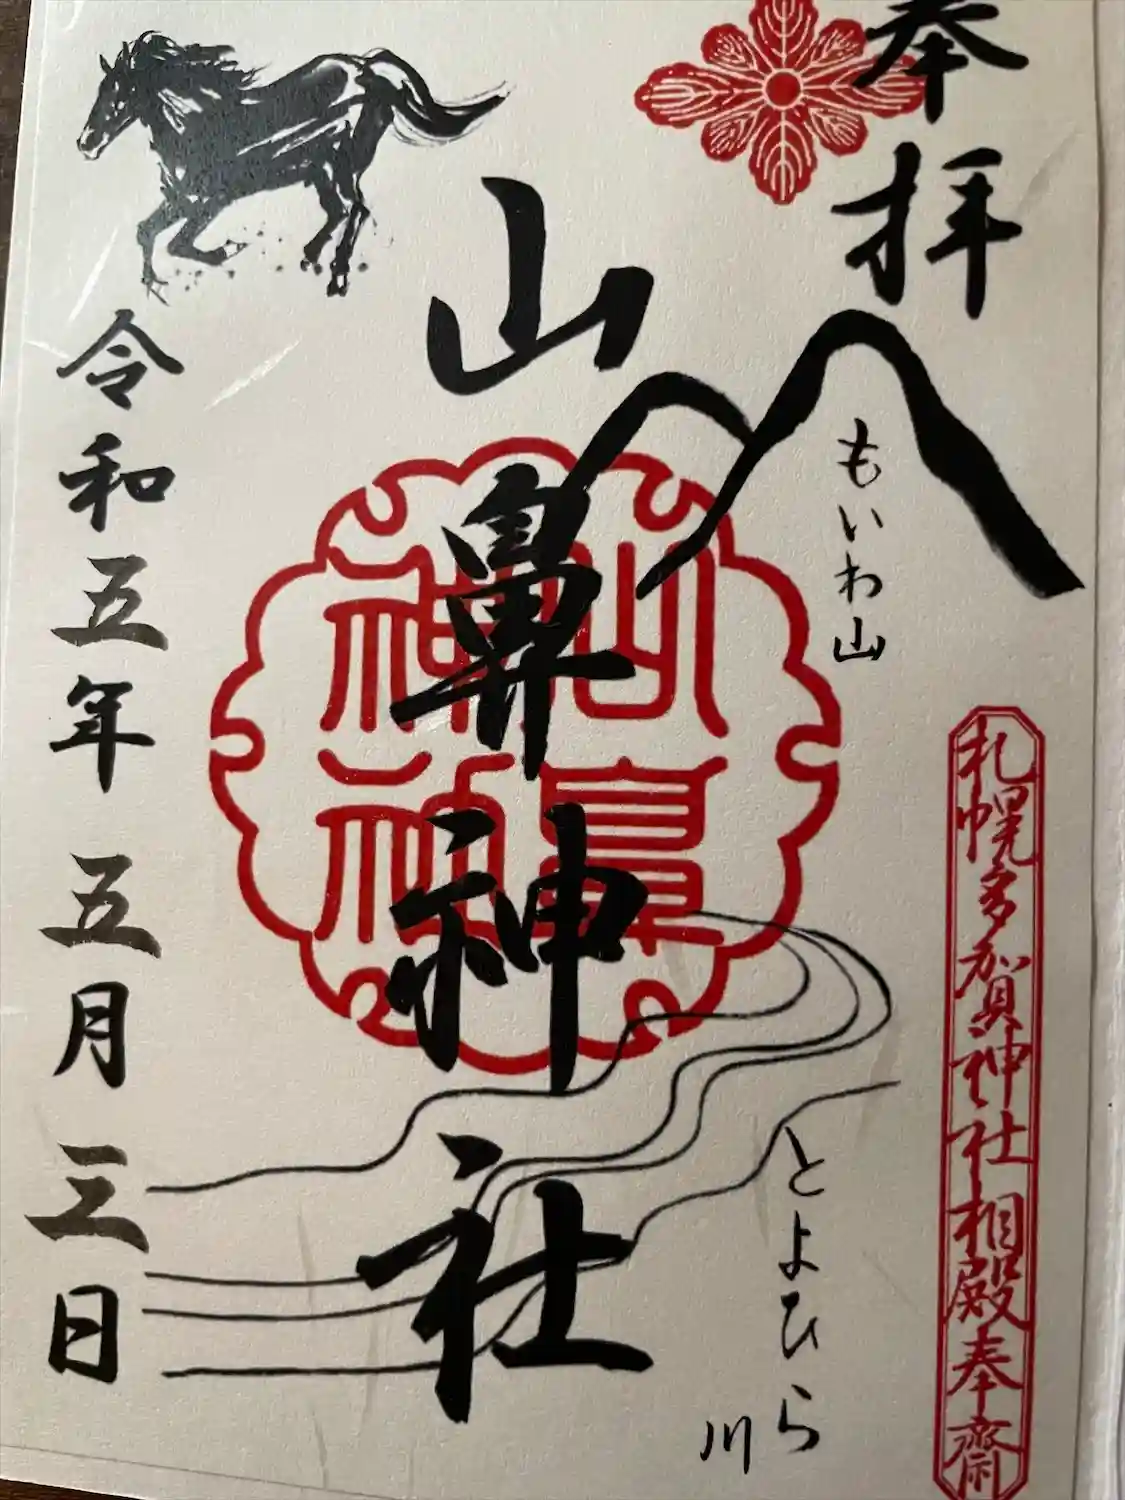 奉拝
もいわ山
札幌多賀神社相殿奉斎
とよひら川
山鼻神社
山鼻神社
令和五年五月三日